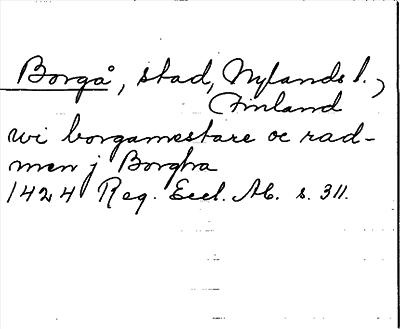 Borgå, stad, Nylands l.,
Finland
wi borgamestare oc rad-
men j Borgha
1424 Reg. Eccl. Ab. s. 311.